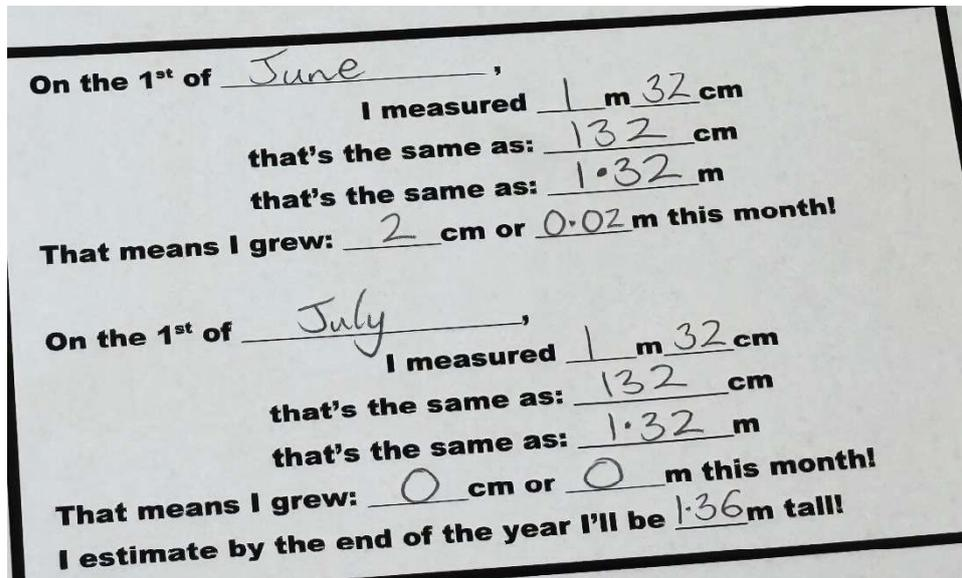 On the 1st of June,
I measured 1 m 32 cm
that's the same as: 132 cm
that's the same as: 1.32 m
That means I grew: 2 cm or 0.02 m this month!
On the 1st of July,
I measured 1 m 32 cm
that's the same as: 132 cm
that's the same as: 1.32 m
That means I grew: 0 cm or 0 m this month!
I estimate by the end of the year I'll be 1.36 m tall!